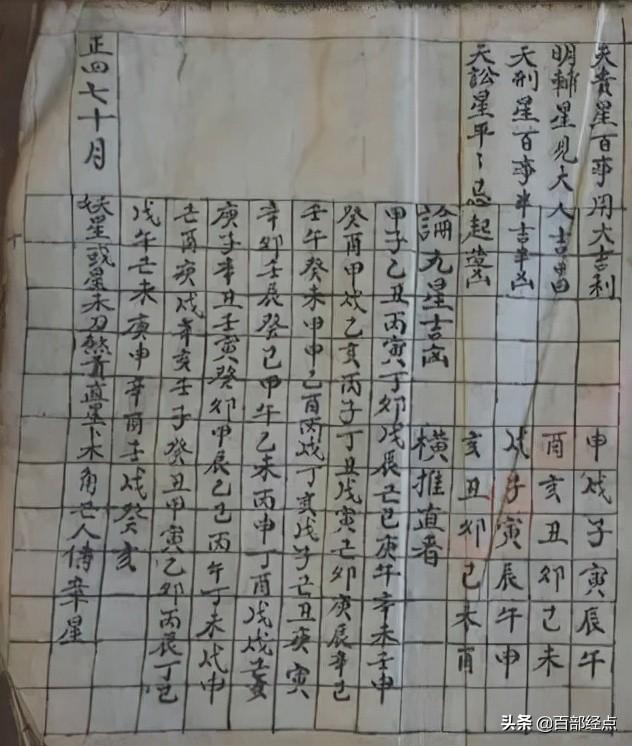 天貴星百事用大吉利 申戌子寅辰午
明輔星見大人吉昌 酉亥丑卯巳未
天刑星百事半吉半凶 戌子寅辰午申
天訟星平〻忌起造凶 亥丑卯巳未酉
論九星吉凶 橫推直看
甲子乙丑丙寅丁卯戊辰己巳庚午辛未壬申
癸酉甲戌乙亥丙子丁丑戊寅己卯庚辰辛巳
壬午癸未甲申乙酉丙戌丁亥戊子己丑庚寅
辛卯壬辰癸巳甲午乙未丙申丁酉戊戌己亥
庚子辛丑壬寅癸卯甲辰乙巳丙午丁未戊申
己酉庚戌辛亥壬子癸丑甲寅乙卯丙辰丁巳
戊午己未庚申辛酉壬戌癸亥
正四七十月
妖星或星未刀煞貢直星卜木角己人傳章星
头条 @百部经点